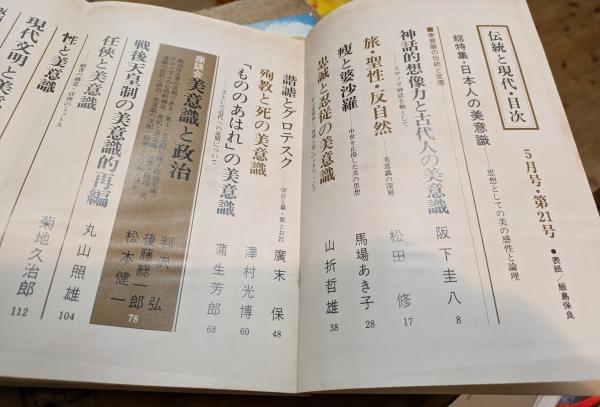 伝統と現代・目次
5月号・第21号
●表紙／飯島保良
総特集・日本人の美意識
思想としての美の感性と論理
■美意識の伝統と変遷
神話的想像力と古代人の美意識
スサノヲ神話を軸として
阪下圭八 8
旅・聖性・反自然
美意識の深層
松田修 17
痩と婆沙羅
中世を止揚した美の思想
馬場あき子 28
忠誠と忍従の美意識
山折哲雄 38
諧謔とグロテスク
廣末保 48
殉教と死の美意識
澤村光博 60
「もののあはれ」の美意識
蒲生芳郎 68
座談会
美意識と政治
判沢弘
後藤総一郎
松本健一
78
戦後天皇制の美意識的再編
丸山照雄 104
任俠と美意識
菊地久治郎 112
性と美意識
現代文明と美意